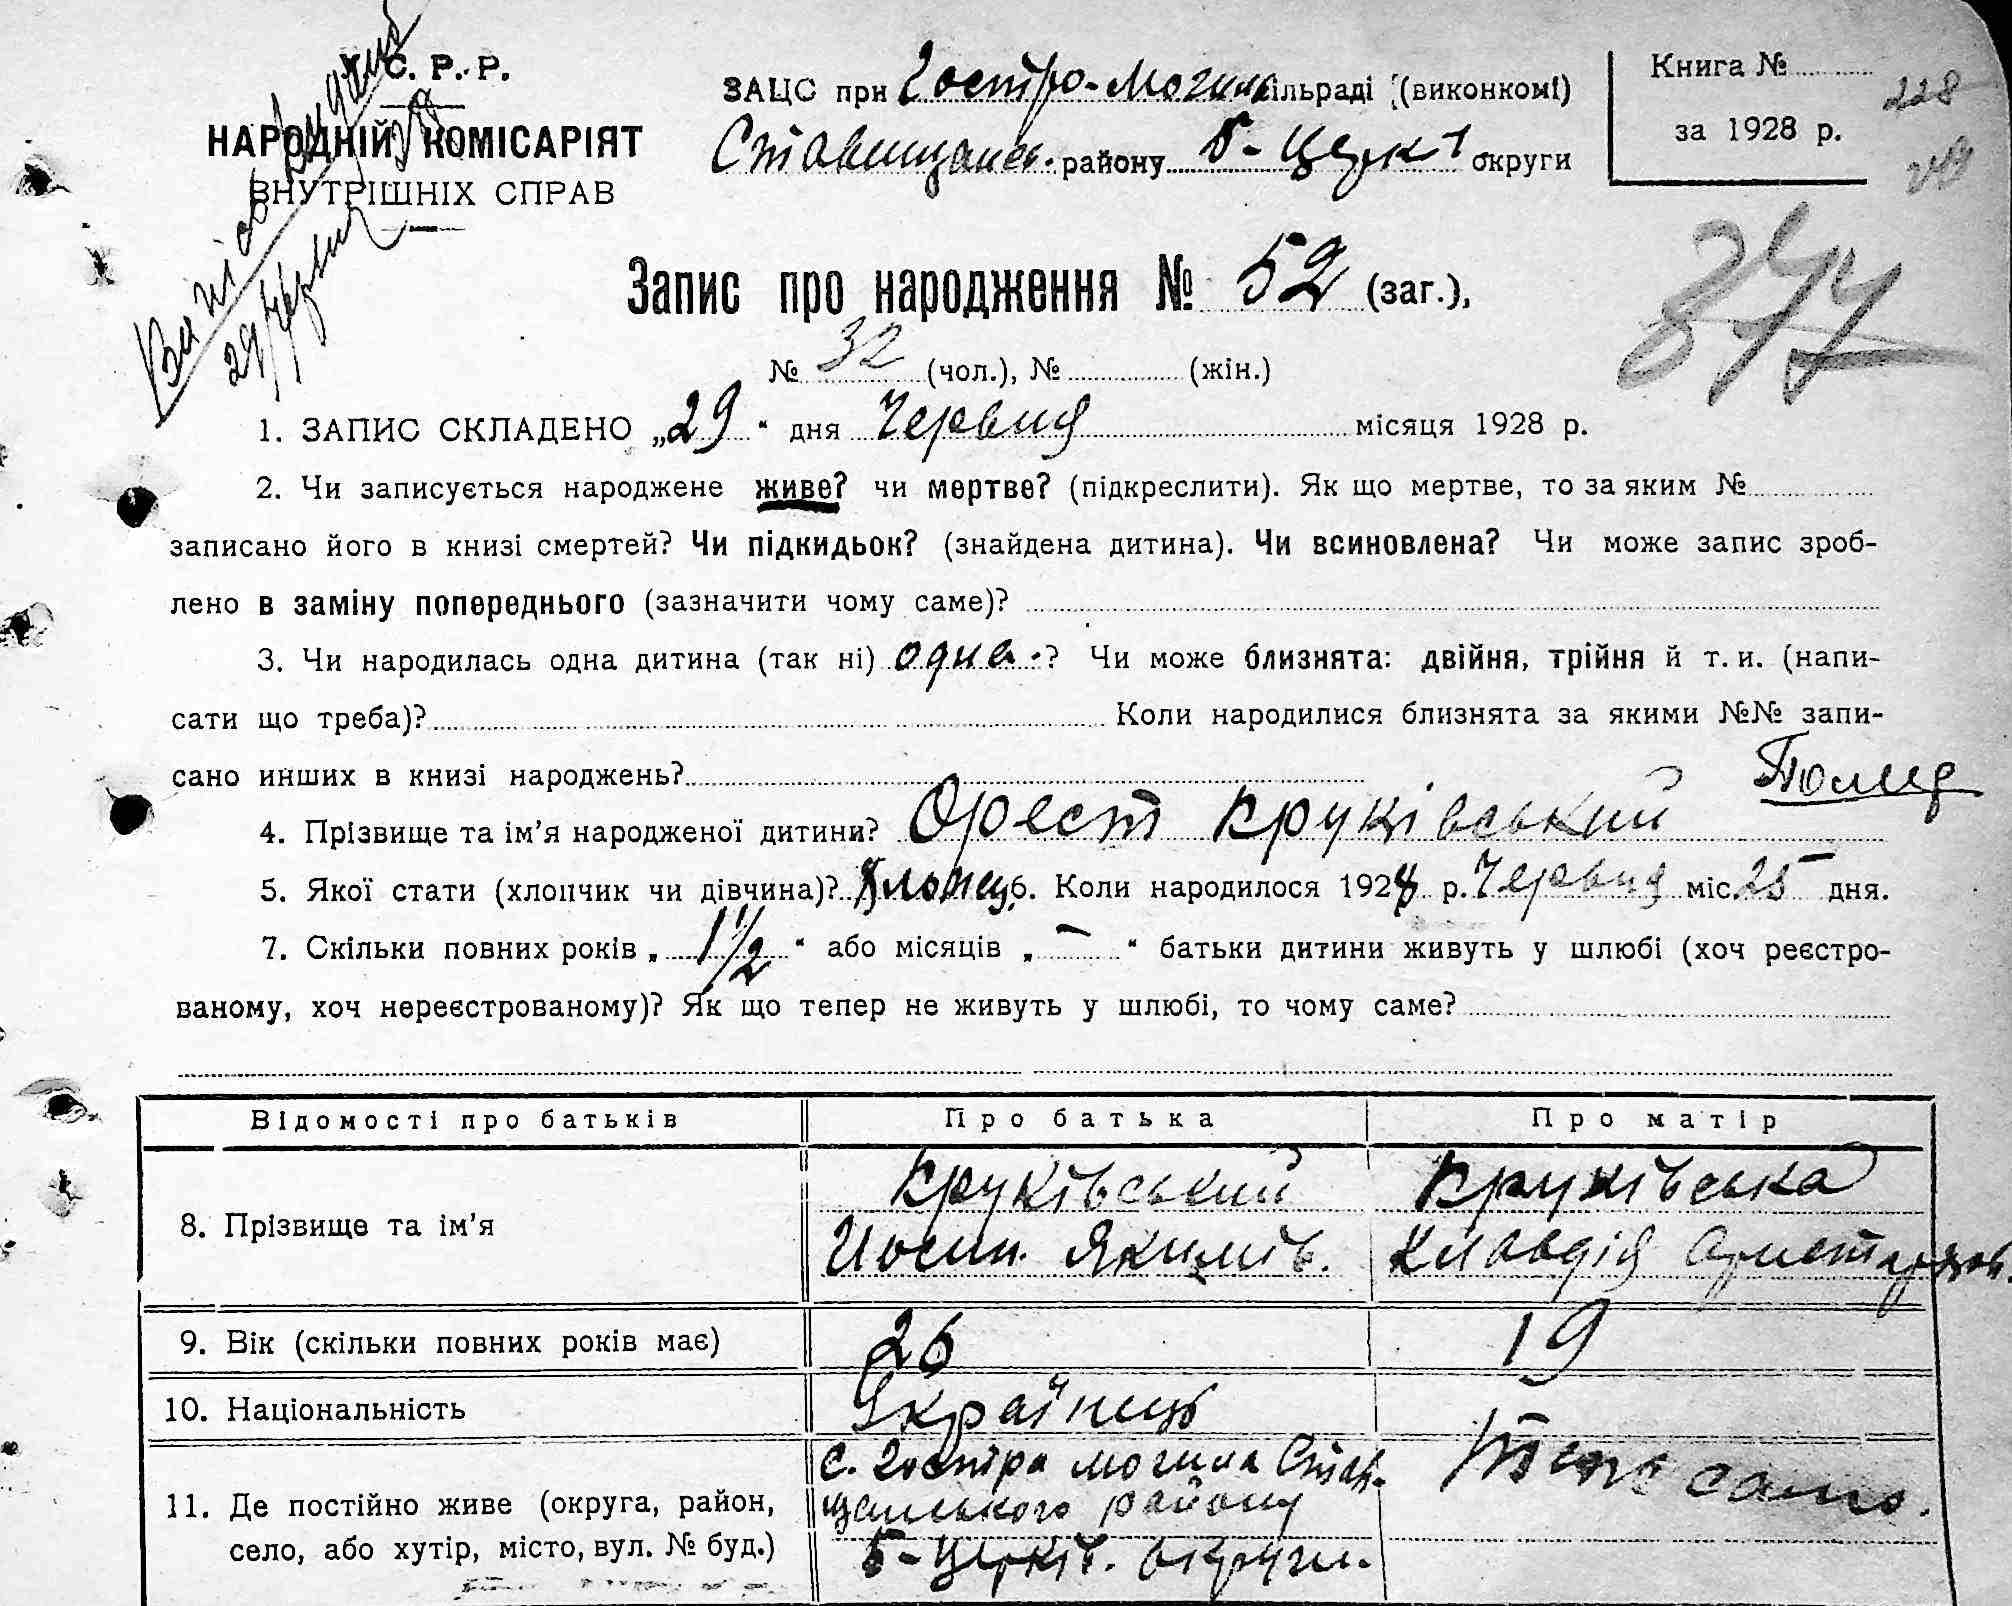 С. Р. Р.
НАРОДНІЙ КОМІСАРІЯТ
ВНУТРІШНІХ СПРАВ
Випис видано
29/червня 28
ЗАЦС при Гостро-Могил. сільраді (виконкомі)
Ставищанск. району Б-Церк. округи
Книга №
за 1928 р.
228
Запис про народження № 52 (заг.),
№ 32 (чол.), № (жін.)
1. ЗАПИС СКЛАДЕНО „29" дня Червня місяця 1928 р.
2. Чи записується народжене живе? чи мертве? (підкреслити). Як що мертве, то за яким №
записано його в книзі смертей? Чи підкидьок? (знайдена дитина). Чи всиновлена? Чи може запис зроб-
лено в заміну попереднього (зазначити чому саме)?
3. Чи народилась одна дитина (так ні) одна? Чи може близнята: двійня, трійня й т. и. (напи-
сати що треба)? Коли народилися близнята за якими №№ запи-
сано инших в книзі народжень?
4. Прізвище та ім'я народженої дитини? Орест Круківський
5. Якої стати (хлопчик чи дівчина)? Хлопец 6. Коли народилося 1928 р. Червня міс. 25 дня.
7. Скільки повних років „ 1 1/2 " або місяців „ — " батьки дитини живуть у шлюбі (хоч реєстро-
ваному, хоч нереєстрованому)? Як що тепер не живуть у шлюбі, то чому саме?
Відомості про батьків Про батька Про матір
8. Прізвище та ім'я Круківський Йосип Якимів. Круківська Клавдія Аристархов.
9. Вік (скільки повних років має) 26 19
10. Національність Українець
11. Де постійно живе (округа, район, село, або хутір, місто, вул. № буд.) с. Гостра могила Став-
щанського району
Б-Церків. округи. Теж само.